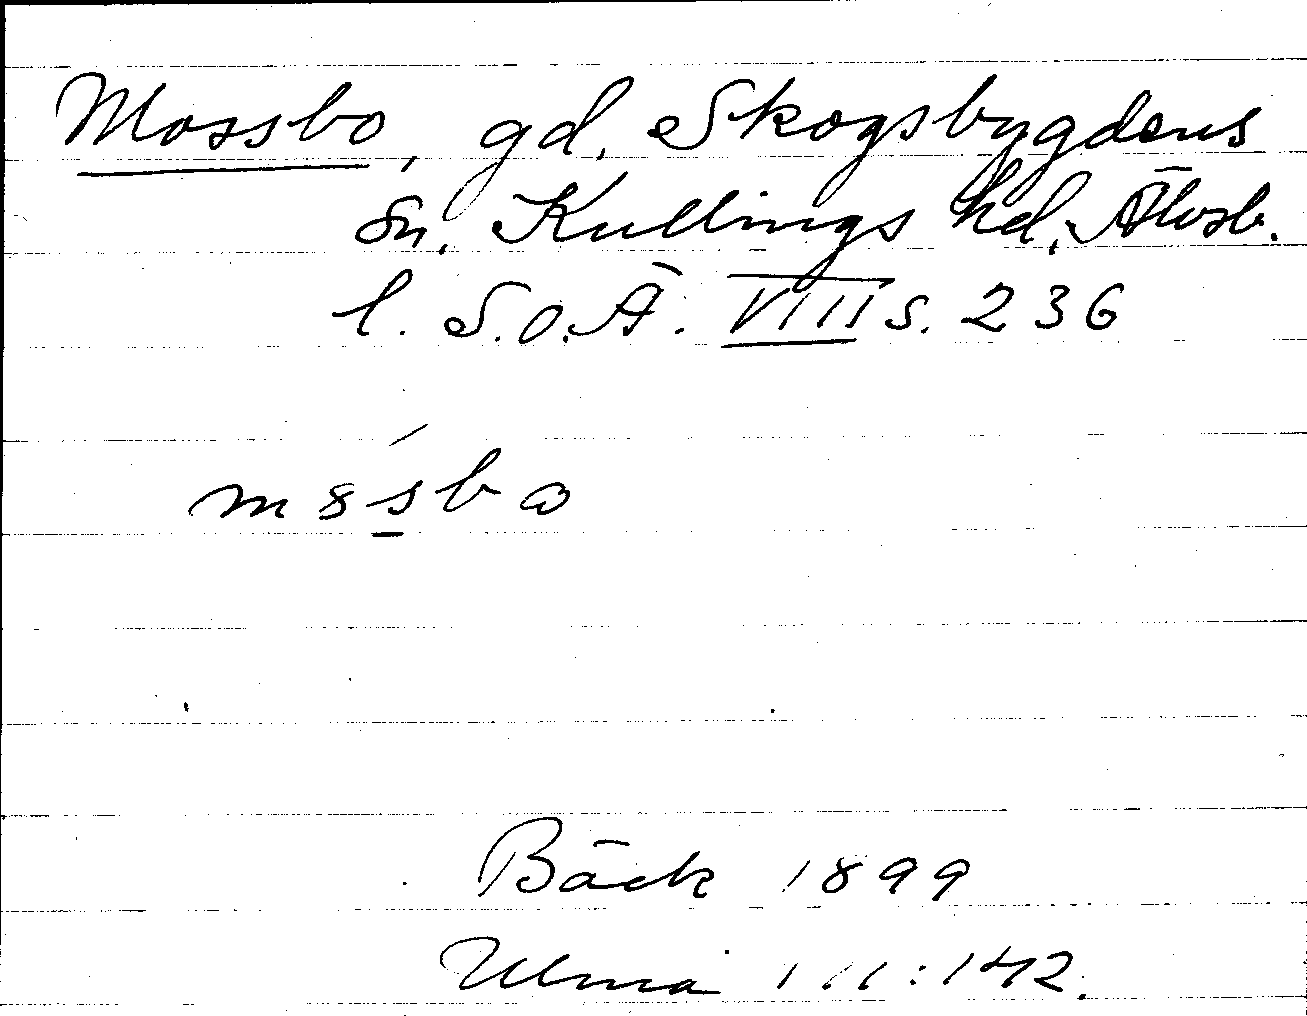 Mossbo, gd, Skogsbygdens
sn, Kullings hd, Älvsb.
l. S.o.Ä. VIII s. 236
m8sbo
Bäck 1899
Ulma 111:142.